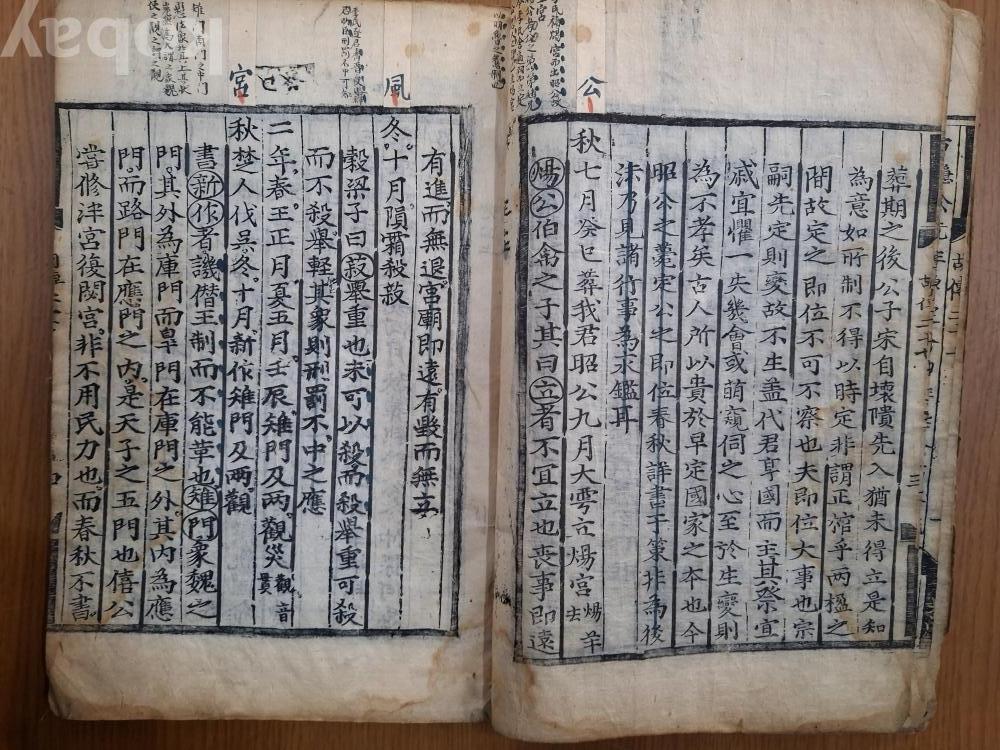 公
葬期之後公子宋自壞隤先入猶未得立是知
為意如所制不得以時定非謂正棺乎兩楹之
間故定之即位不可不察也夫即位大事也宗
嗣先定則變故不生盖代君享國而主其祭宜
戚宜懼一失幾會或萌窺伺之心至於生變則
為不孝矣古人所以貴於早定國家之本也今
昭公之薨定公之即位春秋詳書于策非為後
法乃見諸行事為永鑑耳
秋七月癸巳葬我君昭公九月大雩立煬宮煬羊去
煬公伯禽之子其曰立者不宜立也喪事即遠
風
宮
有進而無退宮廟即遠有毀而無立
冬十月隕霜殺菽
穀梁子曰菽舉重也未可以殺而殺舉重可殺
而不殺舉輕其象則刑罰不中之應
二年春王正月夏五月壬辰雉門及兩觀災觀音貫
秋楚人伐吳冬十月新作雉門及兩觀
書新作者譏僭王制而不能革也雉門象魏之
門其外為庫門而皐門在庫門之外其內為應
門而路門在應門之內是天子之五門也僖公
嘗修泮宮復閟宮非不用民力也而春秋不書